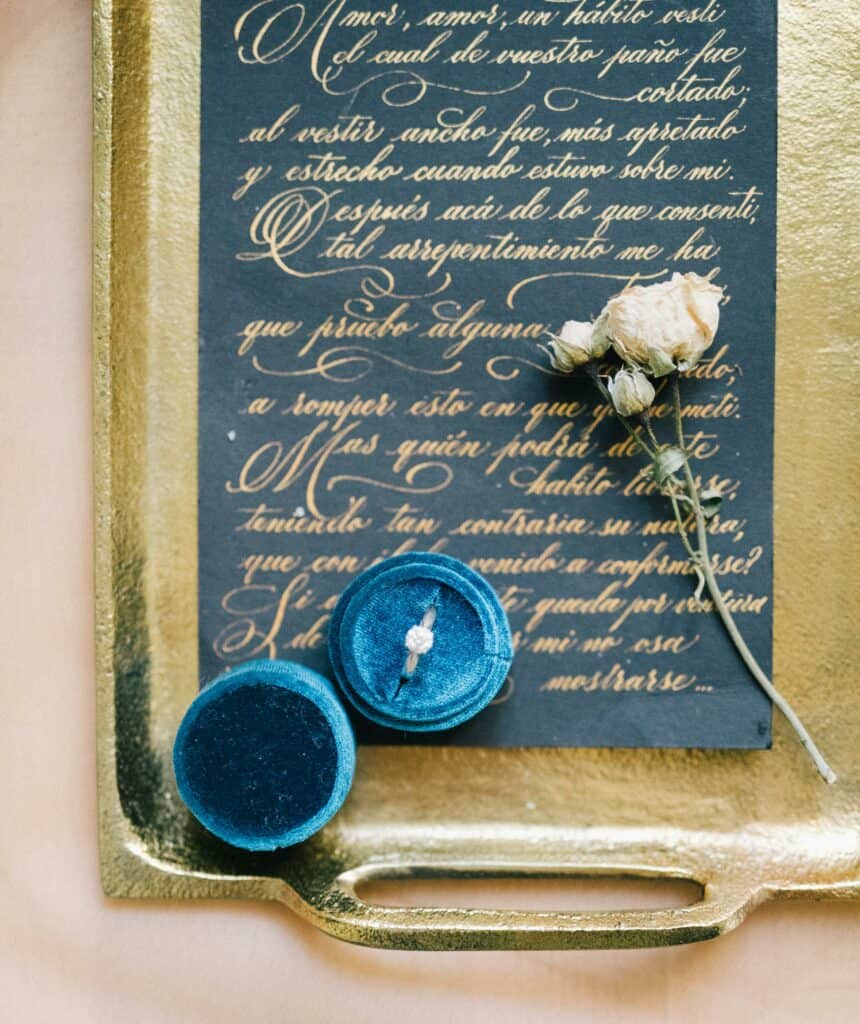 Amor, amor, un hábito vesti
el cual de vuestro paño fue
cortado;
al vestir ancho fue, más apretado
y estrecho cuando estuvo sobre mi.
Después acá de lo que consenti,
tal arrepentimiento me ha
que pruebo alguna
a romper esto en que me meti.
Mas quién podrá
habito
teniendo tan contraria su
que con venido a conformarse?
Si queda por ventura
mi no osa
mostrarse...